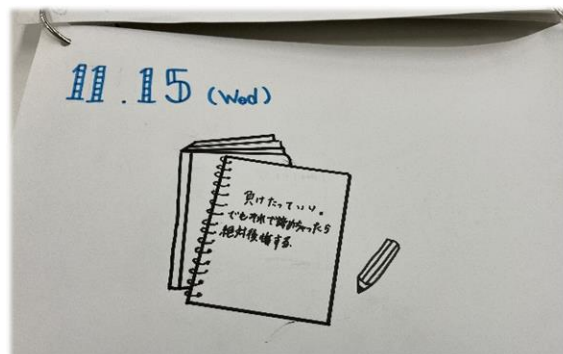 11.15 (Wed)
負けたっていい。
でもそれで諦めちゃったら
絶対後悔する。